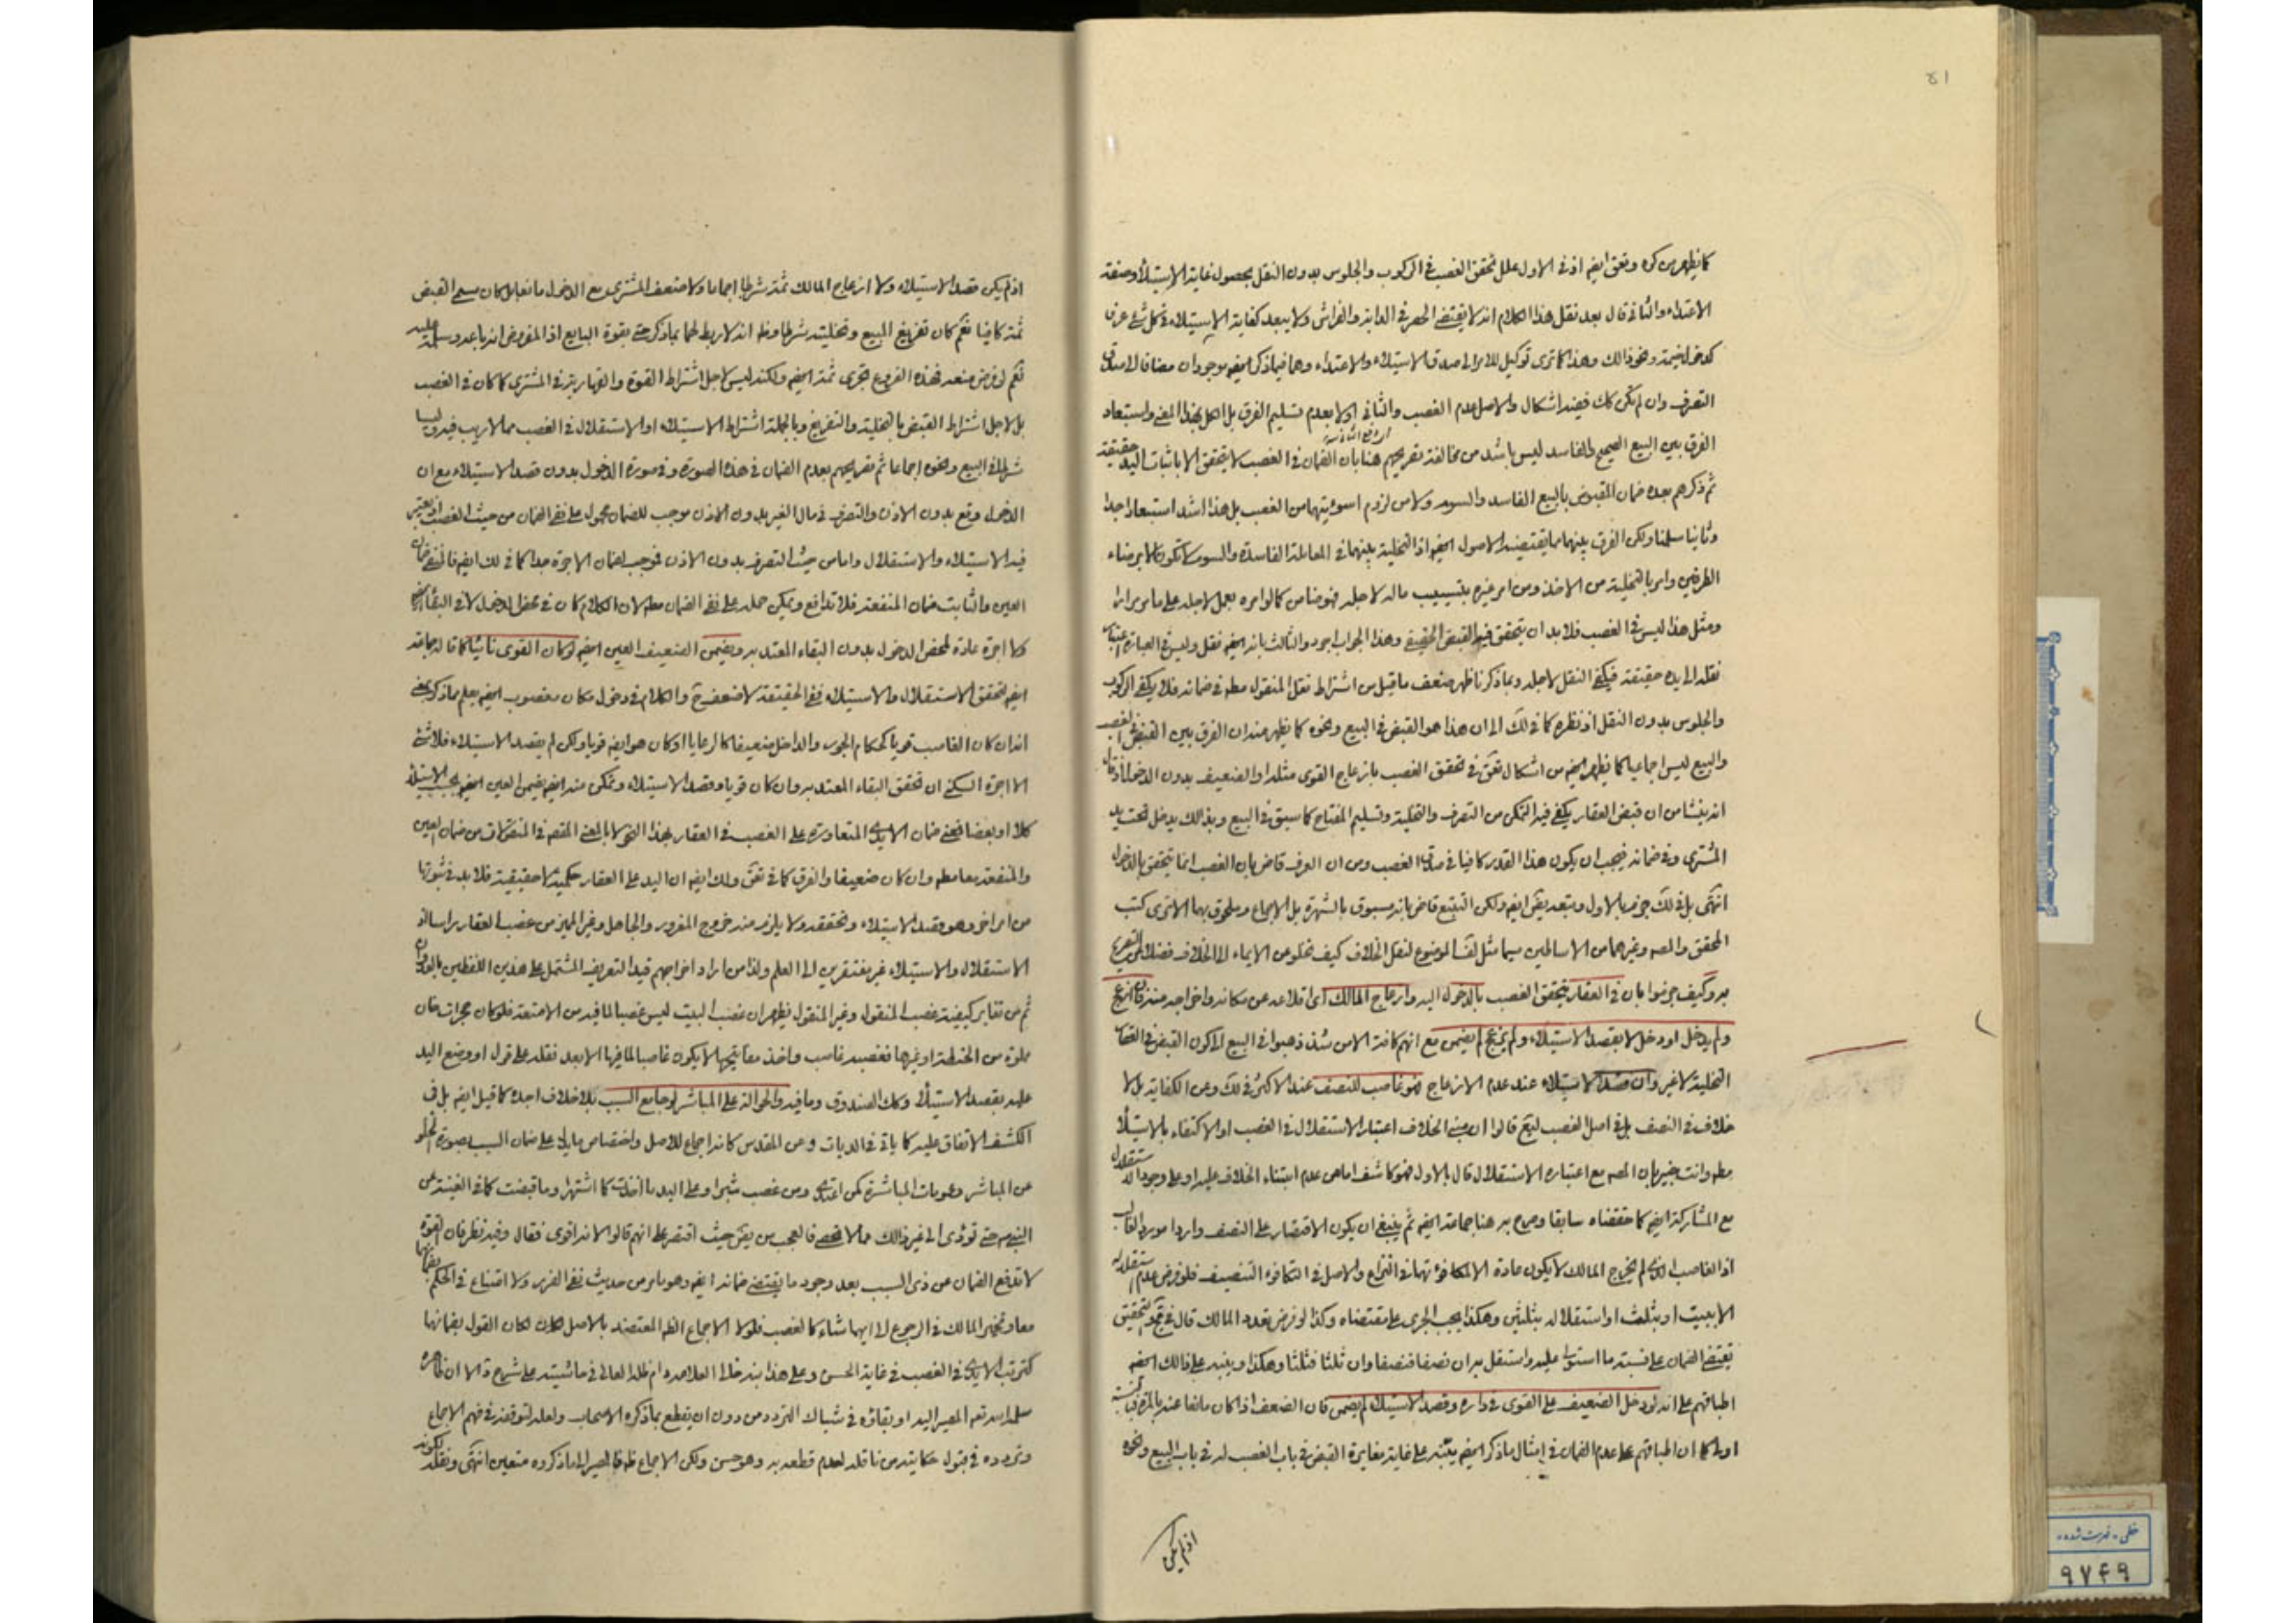 ٤١
كما يظهر من كره وتعق ايضم اذ في الاول علل تحقق الغصب في الركوب والجلوس بدون النقل بحصول غاية الاستيلاء وصفة
الاعتداء والثاني قال بعد نقل هذا الكلام انه لا يقتضي الحصر في الدابة والفراش ولا يبعد كفاية الاستيلاء في كل شئ عرفا
كدخول خيمة ونحو ذالك وهذا كما ترى توكيل للامر الى صدق الاستيلاء والاعتداء وهما فيما ذكر ايضم موجودان مضافا الى صدق
التصرف وان لم يكن كك ففيه اشكال والاصل عدم الغصب والثاني اولا بعدم تسليم الفرق بل الكل بهذا المعنى واستبعاد
الفرق بين البيع الصحيح والفاسد ليس باشد من مخالفة تصريحهم هنا بان الضمان في الغصب لا يتحقق الا باثبات اليد حقيقة
ثم ذكرهم بعده ضمان المقبوض بالبيع الفاسد والسوم ولا من لزوم اسوئيتهما من الغصب بل هذا اشد استبعادا جدا
وثانيا سلمنا ولكن الفرق بينهما مما يقتضيه الاصول ايضم اذ التخلية بينهما في المعاملة الفاسدة والسوم لا تكون الا برضاء
الطرفين وامر بالتخلية من الاخذ ومن امر غيره بتسبيب ماله لاجله فهو ضامن كما لو امره بعمل لاجله على ما مر مرارا
ومثل هذا ليس في الغصب فلا بد ان يتحقق فيه القبض الحقيقي وهذا الجواب اجود والثالث بانه ايضم نقل وليس في العبارة
نقله الى يده حقيقة فيكفي النقل لاجله وبما ذكرنا ظهر ضعف ما قيل من اشتراط نقل المنقول مطم في ضمانه فلا يكفي الركوب
والجلوس بدون النقل او نظره كما في لك الى ان هذا هو القبض في البيع ونحوه كما يظهر منه ان الفرق بين القبض في الغصب
والبيع ليس اجماعيا كما يظهر ايضم من اشكال تعق في تحقق الغصب بازعاج القوى مثله او الضعيف بدون الدخول
انه ينشا من ان قبض العقار يكفي فيه التمكن من التصرف والتخلية وتسليم المفتاح كما سبق في البيع وبذالك يدخل تحت يد
المشتري وفي ضمانه فيجب ان يكون هذا القدر كافيا في صدق الغصب ومن ان العرف قاض بان الغصب انما يتحقق بالدخول
انتهى بل في لك جزم بالاول وتبعه بعض ايضم ولكن التتبع قاض بانه مسبوق بالشهرة بل الاجماع وملحوق بهما الا ترى كتب
المحقق والمصم وغيرهما من الاساطين سيما مثل لف الموضوع لنقل الخلاف كيف تخلو عن الايماء الى الخلاف فضلا عن التصريح
به وكيف جزموا بان في العقار يتحقق الغصب بالدخول اليه وازعاج المالك اى اقلاعه عن مكانه واخراجه منه
ولم يدخل او دخل لا بقصد الاستيلاء ولم يزعج لم يضمن مع انهم كافة الا من شذ ذهبوا في البيع الى كون القبض في العقار
التخلية لا غير وان قصد الاستيلاء عند عدم الازعاج فهو غاصب للنصف عند الاكثر في لك وعن الكفاية بل لا
خلاف في النصف بل في اصل الغصب ثم قالوا ان مبنى الخلاف اعتبار الاستقلال في الغصب او الاكتفاء بالاستيلاء
مطم وانت خبير بان المصم مع اعتباره الاستقلال قال بالاول فهو كاشف اما من عدم ابتناء الخلاف عليه او على وجود الاستقلال
مع المشاركة ايضم كما حققناه سابقا وصرح به هنا جماعة ايضم ثم ينبغي ان يكون الاقتصار على النصف واردا مورد الغالب
اذ الغاصب الذى لم يخرج المالك لا يكون عادة الا لمكافؤتهما في النزاع والاصل في التكافؤ التنصيف فلو فرض عدم استقلاله
الا ببيت او بثلث او استقلاله بثلثين وهكذا يجب الجرى على مقتضاه وكذا لو فرض تعدد المالك قال في التحقيق
يقتضى الضمان على نسبة ما استولى عليه واستقل به ان نصفا فنصفا وان ثلثا فثلثا وهكذا وينبه على ذالك ايضم
اطباقهم على انه لو دخل الضعيف على القوى في داره وقصد الاستيلاء لم يضمن فان الضعف اذا كان مانعا عنه بالمرة
اولى كما ان اطباقهم على عدم الضمان في امثال ما ذكر ايضم ينبه على غاية مغايرة القبض في باب الغصب له في باب البيع ونحوه
اذ لم يكن
اذ لم يكن قصد الاستيلاء ولا ازعاج المالك ثمة شرطا اجماعا ولا ضعف المشترى مع الدخول مانعا بل كان مسمى القبض
ثمة كافيا نعم كان تفريغ المبيع وتخليته شرطا وظم انه لا ربط لهما بما ذكر حتى بقوة البايع اذ المفروض انه باعه وسلمه
نعم لو فرض منعه فهذه الفروع تجرى ثمة ايضم ولكنه ليس لاجل اشتراط القوة والقهارية في المشترى كما كان في الغصب
بل لاجل اشتراط القبض بالتخلية والتفريغ وبالجملة اشتراط الاستيلاء او الاستقلال في الغصب مما لا ريب فيه وليسا
شرطا في البيع ونحوه اجماعا ثم تصريحهم بعدم الضمان في هذه الصورة وفي صورة الدخول بدون قصد الاستيلاء مع ان
الدخول وقع بدون الاذن والتصرف في مال الغير بدون الاذن موجب للضمان محمول على نفى الضمان من حيث الغصب
فيه الاستيلاء والاستقلال واما من حيث التصرف بدون الاذن فموجب لضمان الاجرة جدا كما في لك ايضم فالمنفى ضمان
العين والثابت ضمان المنفعة فلا تدافع ويمكن حمله على نفى الضمان مطم لان الكلام كان في محض الدخول لا في البقاء
ولا اجرة عادة لمحض الدخول بدون البقاء المعتد به ويضمن الضعيف العين ايضم لو كان القوى نائيا كما قاله جماعة
ايضم لتحقق الاستقلال والاستيلاء ففي الحقيقة لا ضعف ح والكلام في دخول مكان مغصوب ايضم يعلم مما ذكر بمعنى
انه ان كان الغاصب قويا كحكام الجور والداخل ضعيفا كالرعايا او كان هو ايضم قويا ولكن لم يقصد الاستيلاء فلا شئ
الا اجرة السكنى ان تحقق البقاء المعتد به وان كان قويا وقصد الاستيلاء وتمكن منه ايضم يضمن العين ايضم بحسب الاستيلاء
كلا او بعضا فيجئ ضمان الايدى المتعاورة على الغصب في العقار بهذا النحو لا بالمعنى المقصم في المنقولات من ضمان العين
والمنفعة معا مطم وان كان ضعيفا والفرق كما في تعق ولك ايضم ان اليد على العقار حكمية لا حقيقية فلا بد في ثبوتها
من امر اخر وهو قصد الاستيلاء وتحققه ولا يلزم منه خروج المغرور والجاهل وغير المميز من غصب العقار براسه اذ
الاستقلال والاستيلاء غير مفتقرين الى العلم ولذا من اراد اخراجهم قيد التعريف المشتمل على هذين اللفظين بالعدوان
ثم من تغاير كيفية غصب المنقول وغير المنقول يظهر ان غصب البيت ليس غصبا لما فيه من الامتعة فلو كان حجرات خان
مملوة من الحنطة او غيرها فغصبه غاصب واخذ مفاتيحها لا يكون غاصبا لما فيها الا بعد نقله على قول او وضع اليد
عليه بقصد الاستيلاء وكك الصندوق وما فيه والحوالة على المباشر لو جامع السبب بلا خلاف اجده كما قيل ايضم بل في
الكشف الاتفاق عليه كما ياتى في الديات وعن المقدس كانه اجماع للاصل واختصاص ما دل على ضمان السبب بصورة الخلو
عن المباشر وعمومات المباشرة كمن اعتدى ومن غصب شبرا وعلى اليد ما اخذت كما اشتهر او ما قبضت كما في الغنية عن
النبى صم حتى تؤدى الى غير ذالك مما لا يحصى فالعجب من بعض حيث اقتصر على انهم قالوا لانه اقوى فقال وفيه نظر فان القوة
لا تدفع الضمان عن ذى السبب بعد وجود ما يقتضى ضمانه ايضم وهو ما مر من حديث نفى الضرر ولا امتناع في الحكم بضمانهما
معا وتخير المالك في الرجوع الى ايهما شاء كالغصب فلولا الاجماع الظم المعتضد بالاصل لكان القول بضمانهما
كترتب الايدى في الغصب في غاية الحسن وعلى هذا نبه خالى العلامة دام ظله العالى في حاشيته على شرح ه الا ان ظاهره
سلمه الله تعم المصير اليه او بقاؤه في شباك التردد من دون ان يقطع بما ذكره الاصحاب ولعله لتوقفه في فهم الاجماع
وتردده في قبول حكايته من ناقله لعدم قطعه به وهو حسن ولكن الاجماع ظم فالمصير الى ما ذكروه متعين انتهى
خطى - فهرست شده
٩٧٤٩